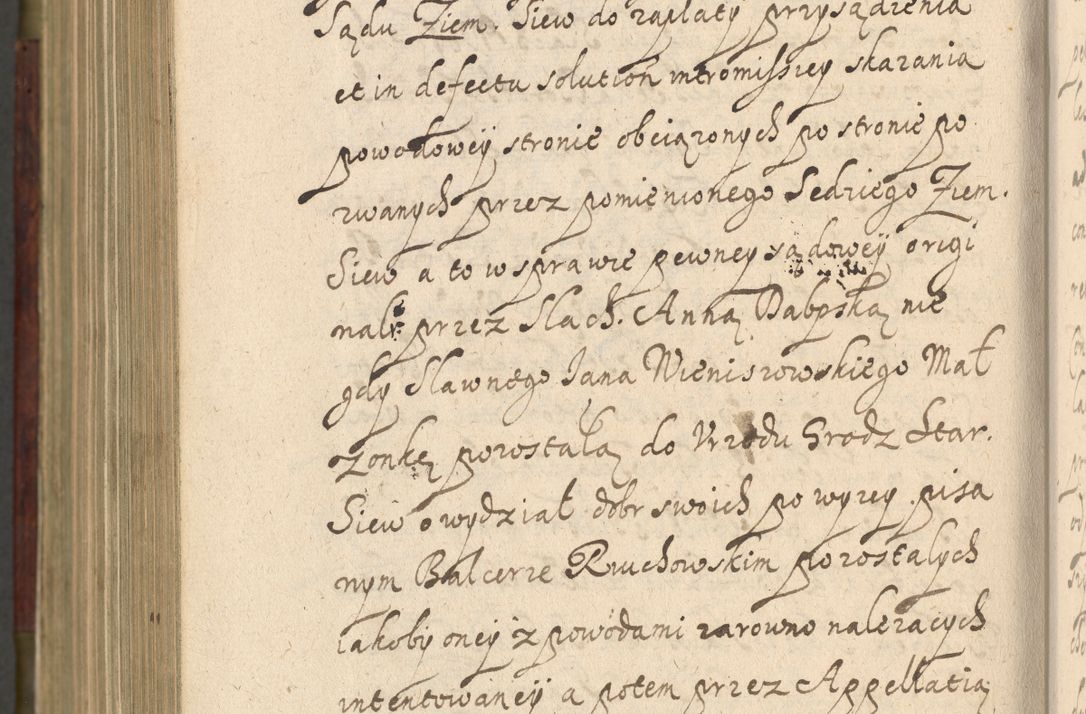 Sądu Ziem. Siew do zapłaty przysądzenia
et in defectu solution intromissiey skazania
powodowey stronie obciązonych po stronie po
zwanych przez pomienionego Sedziego Ziem.
Siew a to w sprawie pewney sądowey origi
nali przez Slach. Annę Babpską nie
gdy Sławnego Jana Wieniszowskiego Mał
zonkę pozostałą do Urzedu Grodz Star.
Siew o wydział dobr swoich po wyzey pisa
nym Balcerze Ruuchowskim pozostałych
iakoby oney z powodami zarowno nalezacych
intentowaney a potem przez Appellatią